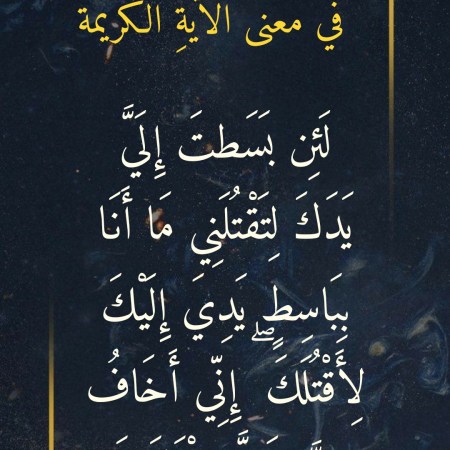 في معنى الآيةِ الكريمة
لَئِن بَسَطتَ إِلَيَّ
يَدَكَ لِتَقْتُلَنِي مَا أَنَا
بِبَاسِطٍ يَدِيَ إِلَيْكَ
لِأَقْتُلَكَ ۖ إِنِّي أَخَافُ